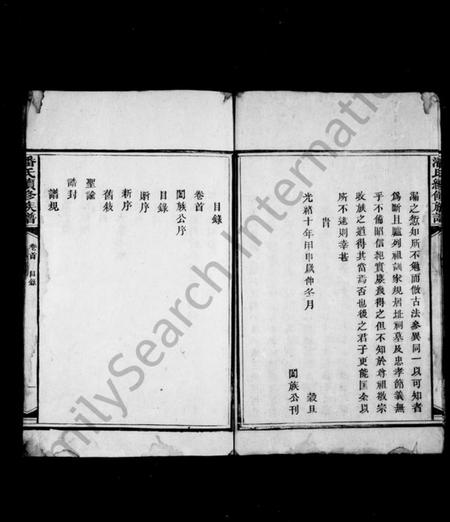 漏之愆知所不免而倣古法參異同一以可知者
為斷且臚列祖訓家規居址祠墓及忠孝節義無
乎不備昭信紀實庶幾得之但不知於尊祖敬宗
收族之道得其當焉否也後之君子更能匡余以
所不逮則幸甚
峕
光緒十年甲申歲仲冬月 穀旦
闔族公刊
潘氏續修族譜
目錄
卷首
闔族公序
目錄
新序
舊敘
聖諭
誥封
譜規
潘氏續修族譜 卷首 目錄 一
FamilySearch International